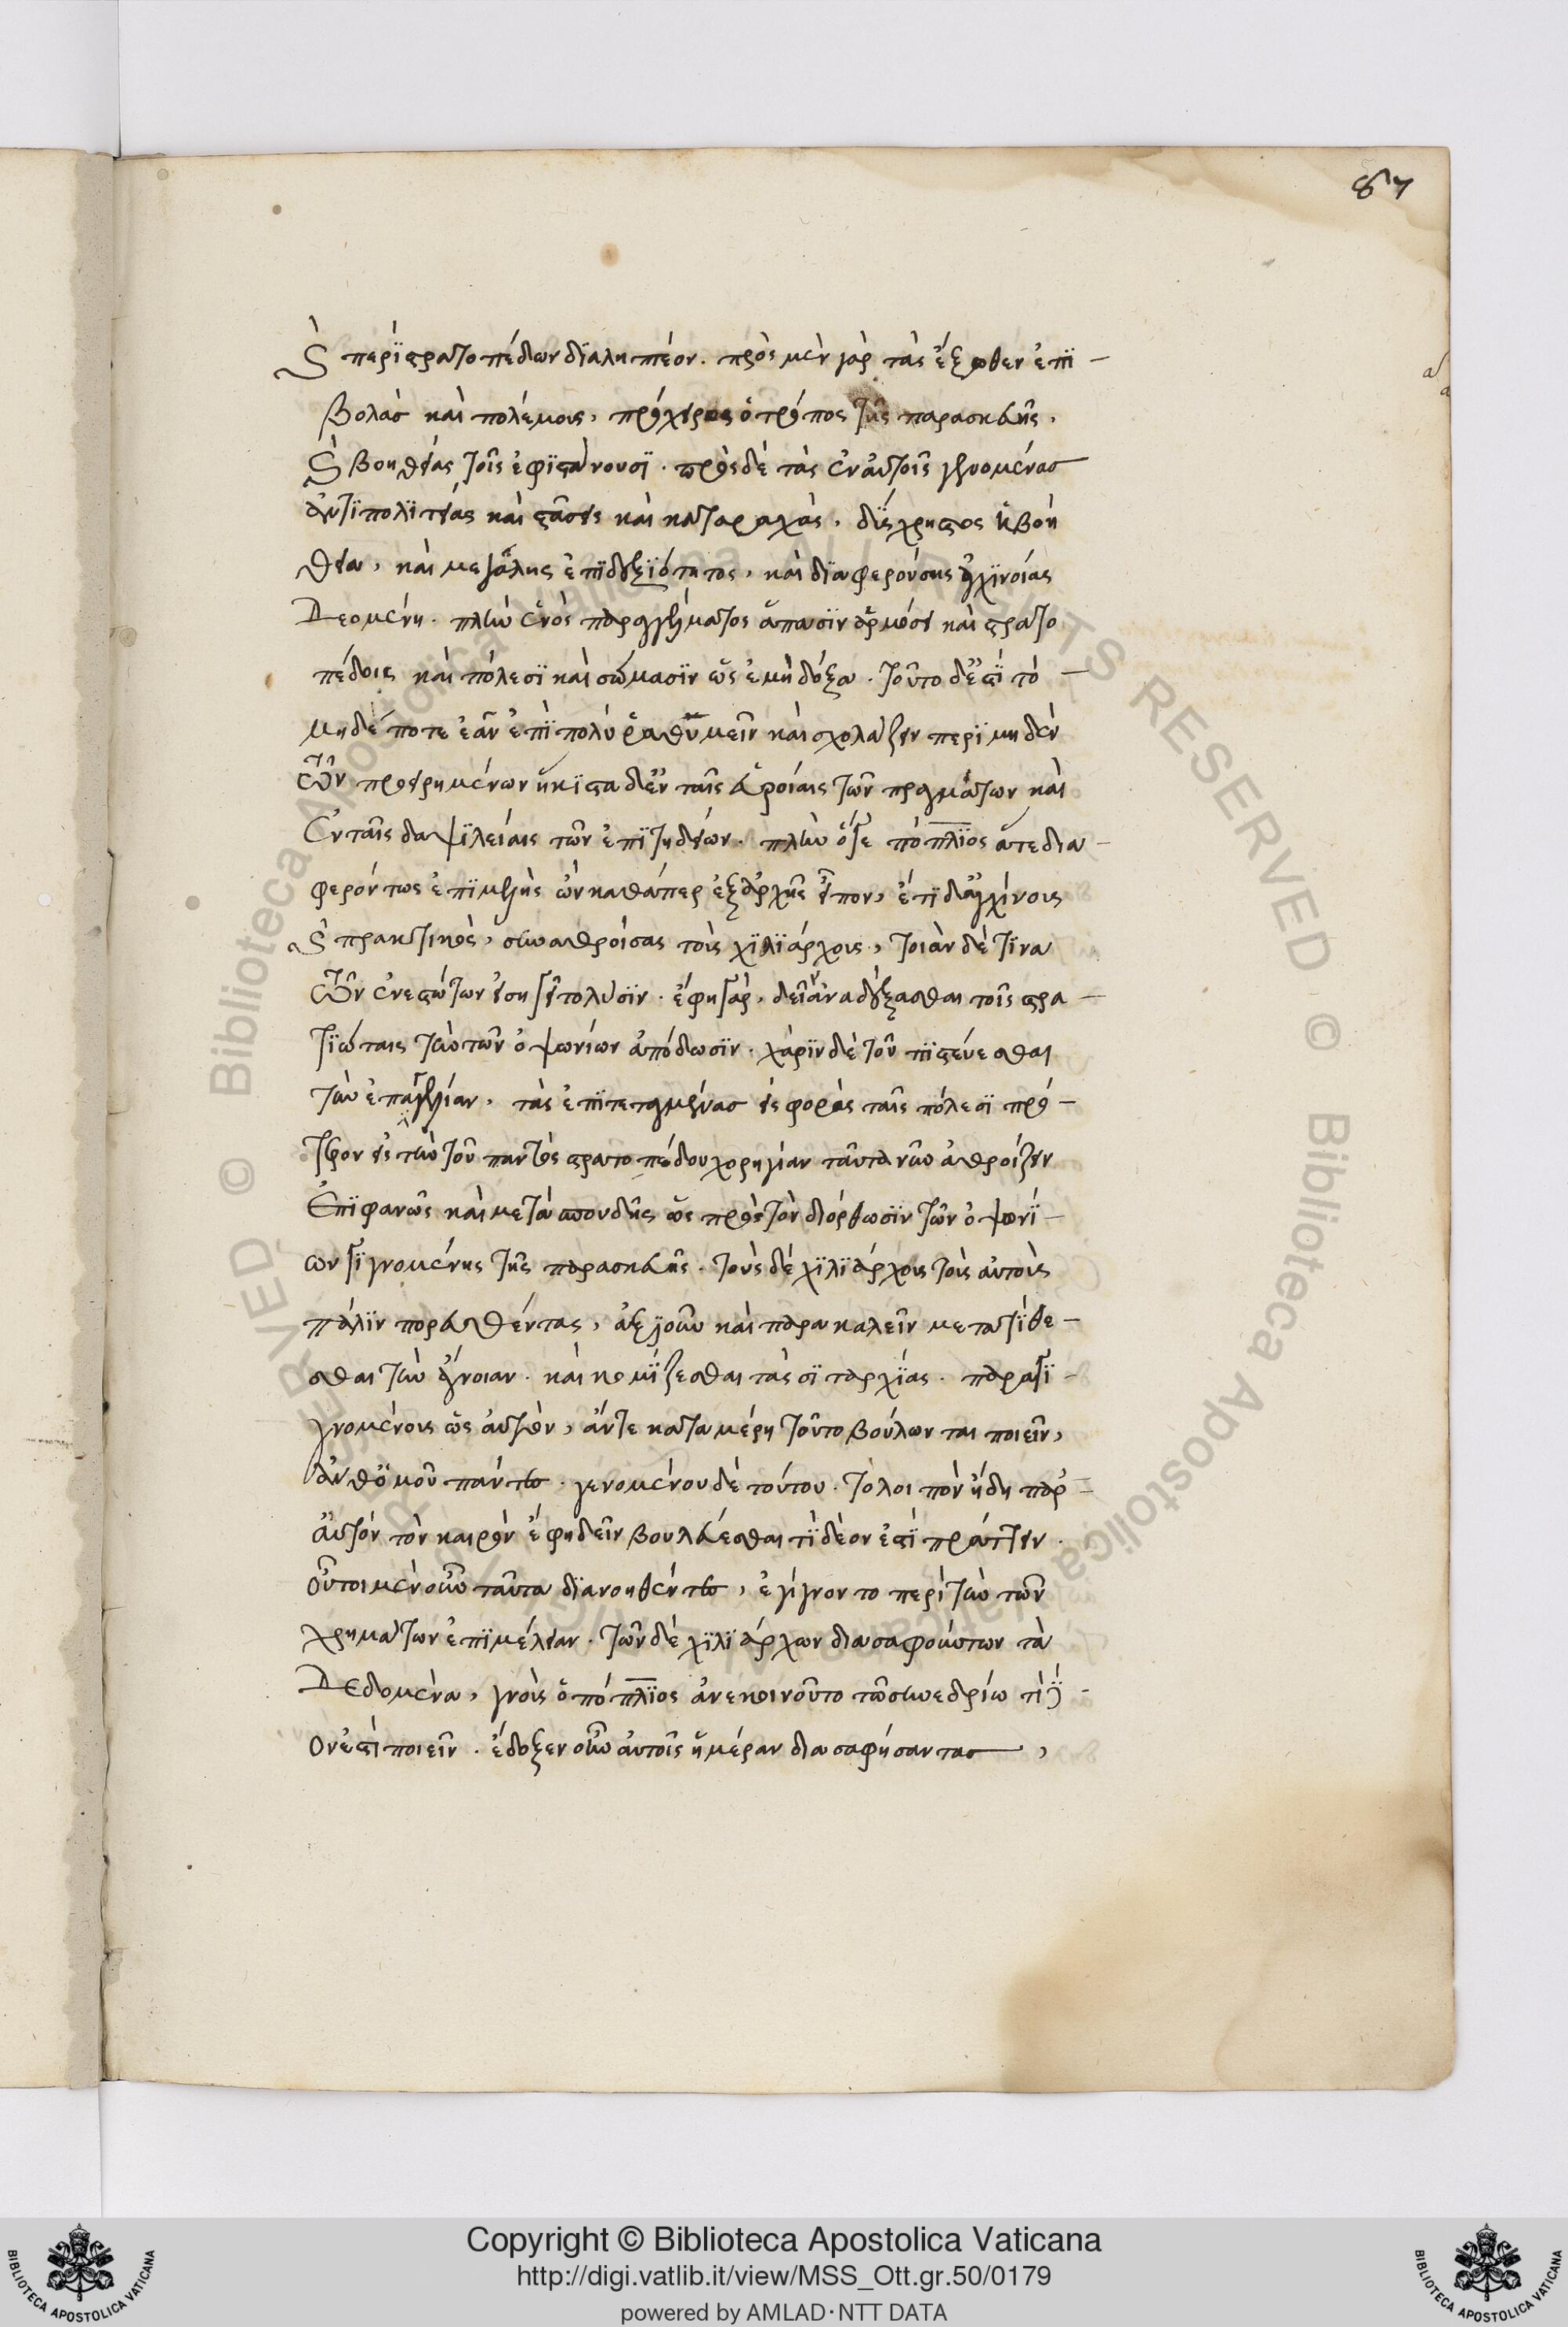 87
καὶ περὶ στρατοπέδων διαληπτέον. πρὸς μὲν γὰρ τὰς ἔξωθεν ἐπι-
βολὰς καὶ πολέμους, πρόχειρος ὁ τρόπος τῆς παρασκευῆς,
καὶ βοηθείας τοῖς ἐφιστάνουσι. πρὸς δὲ τὰς ἐν αὐτοῖς γενομένας
ἀντιπολιτείας καὶ στάσεις καὶ καταραχὰς, δύσχρηστος ἡ βοή
θεια, καὶ μεγάλης ἐπιδεξιότητος, καὶ διαφερούσης ἀγχινοίας
δεομένη. πλὴν ἑνὸς παραγγέλματος ἅπασιν ἁρμόσει καὶ στρατο
πέδοις καὶ πόλεσι καὶ σώμασιν ὡς ἐμὴ δόξα. τοῦτο δ' ἐστὶ τὸ -
μηδέποτε ἐᾶν ἐπὶ πολὺ ῥαθυμεῖν καὶ σχολάζειν περὶ μηδὲν
τῶν προειρημένων ἥκιστα δ' ἐν ταῖς εὐροίαις τῶν πραγμάτων καὶ
ἐν ταῖς δαψιλείαις τῶν ἐπιτηδείων. πλὴν ὅγε πόπλιος ἅτε δια-
φερόντως ἐπιμελὴς ὢν καθάπερ ἐξ ἀρχῆς εἶπον, ἔτι δ' ἀγχίνους
καὶ πρακτικὸς, συναθροίσας τοὺς χιλιάρχους, τοιὰν δέ τινα
τῶν ἐνεστώτων εἰσηγεῖτο λύσιν. ἔφη γὰρ, δεῖν ἀναδέξασθαι τοῖς στρα-
τιώταις τὴν τῶν ὀψωνίων ἀπόδωσιν. χάριν δὲ τοῦ πιστεύεσθαι
τὴν ἐπαγγελίαν, τὰς ἐπιτεταγμένας εἰσφορὰς ταῖς πόλεσι πρό-
τερον εἰς τὴν τοῦ παντὸς στρατοπέδου χορηγίαν ταῦτα νῦν ἀθροίζειν
ἐπιφανῶς καὶ μετὰ σπουδῆς ὡς πρὸς τὸν διόρθωσιν τῶν ὀψωνί-
ων γιγνομένης τῆς παρασκευῆς. τοὺς δὲ χιλιάρχους τοὺς αὐτοὺς
πάλιν πορευθέντας, ἀξιοῦν καὶ παρακαλεῖν μετατίθε-
σθαι τὴν ἄγνοιαν. καὶ κομίζεσθαι τὰς σιταρχίας. παραγι-
γνομένους ὡς αὐτὸν, ἄντε κατα μέρη τοῦτο βούλωνται ποιεῖν,
ἄνθ' ὁμοῦ πάντες. γενομένου δὲ τούτου. τὸ λοιπὸν ἤδη παρ'-
αὐτόν τὸν καιρὸν ἔφη δεῖν βουλεύεσθαι τί δέον ἐστὶ πράττειν.
οὗτοι μὲν οὖν ταῦτα διανοηθέντες, ἐγίγνοντο περὶ τὴν τῶν
χρημάτων ἐπιμέλειαν. τῶν δὲ χιλιάρχων διασαφούντων τὰ
δεδομένα, γνοὺς ὁ πόπλιος ἀνεκοινοῦτο τῶ συνεδρίω τί δέ-
ον ἐστὶ ποιεῖν. ἔδοξεν οὖν αὐτοῖς ἡμέραν διασαφήσαντας,
Copyright © Biblioteca Apostolica Vaticana
http://digi.vatlib.it/view/MSS_Ott.gr.50/0179
powered by AMLAD·NTT DATA
BIBLIOTECA APOSTOLICA VATICANA
BIBLIOTECA APOSTOLICA VATICANA